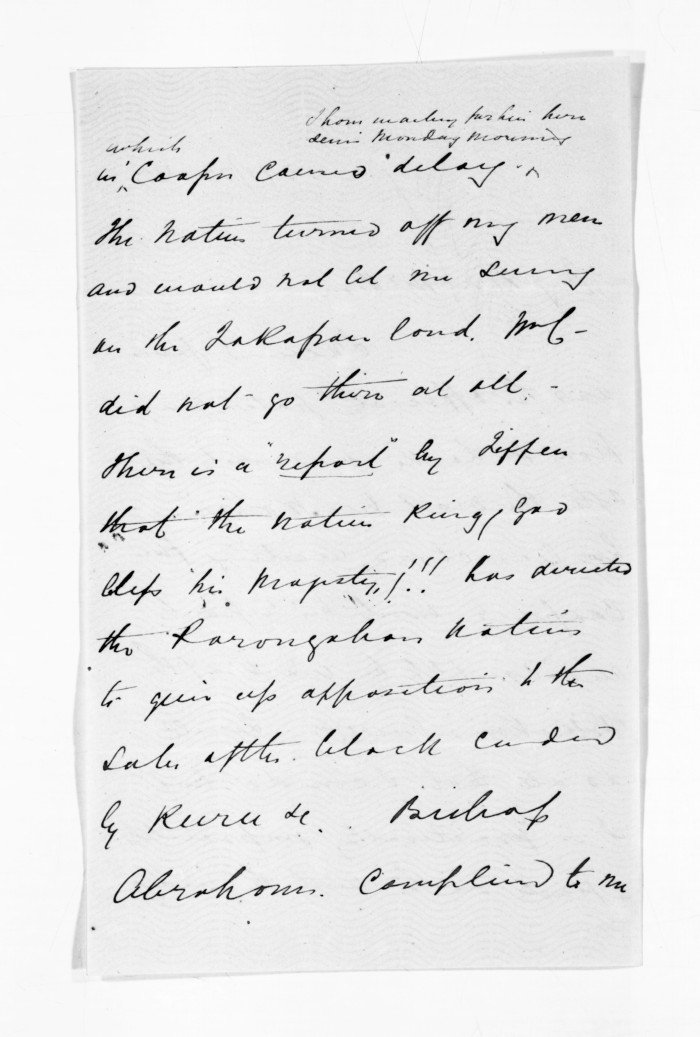 I have waiting for him here
since Monday morning
which
in Cooper caused delay.
the Natives turned off my men
and would not let me survey
on the Takapau land. McL
did not go there at all. -
There is a "report" by Tiffen
that the native King, (God
bless his Majesty)!!! has directed
the Rarongahau Natives
to give up opposition to the
Sale of the block ceded
by &c. Bishop
Abraham. Complained to me